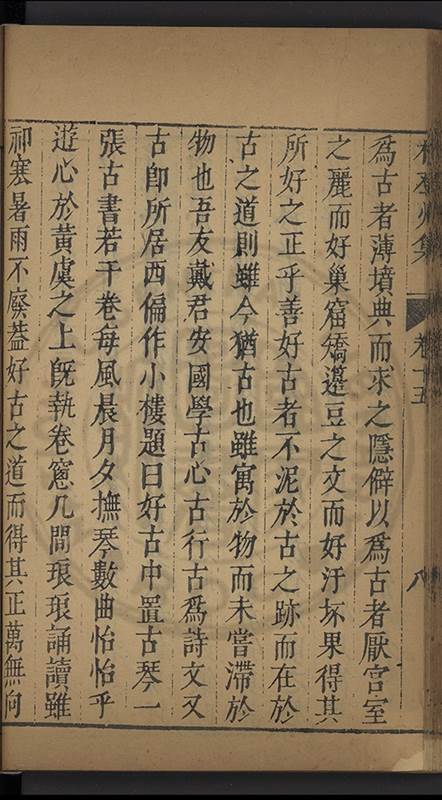 集 卷十五 八
爲古者薄墳典而求之隱僻以爲古者厭宫室
之麗而好巢窟矯籩豆之文而好汙坏果得其
所好之正乎善好古者不泥於古之跡而在於
古之道則雖今猶古也雖寓於物而未嘗滯於
物也吾友戴君安國學古心古行古爲詩文又
古卽所居西偏作小樓題曰好古中置古琴一
張古書若干卷每風晨月夕撫琴數曲怡怡乎
遊心於黄虞之上旣執卷窻几間琅琅誦讀雖
祁寒暑雨不廢葢好古之道而得其正萬無向